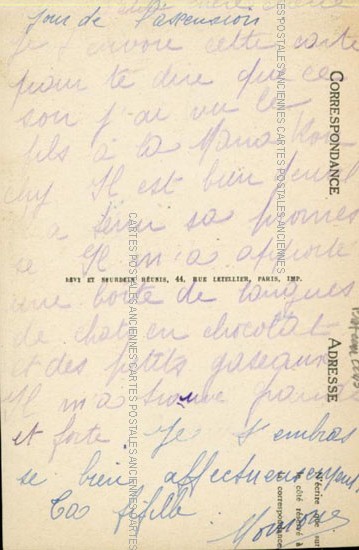 Jour de l'ascension
Je t'envoie cette carte
pour te dire que ce
soir j'ai vu le
fils à la
Il est bien gentil
tenu sa promes
se Il m'a apporté
une boîte de langues
de chat en chocolat
et des petits gateaux
Il m'a trouvé grande
et forte Je t'embras
se bien affectueusement
Ta fifille
CORRESPONDANCE
ADRESSE
LÉVY ET NEURDEIN RÉUNIS, 44, RUE LETELLIER, PARIS, IMP.
N'écrire que sur
le côté réservé à
la correspondance
CARTES POSTALES ANCIENNES CARTES POSTALES ANCIENNES
CARTES POSTALES ANCIENNES CARTES POSTALES ANCIENNES